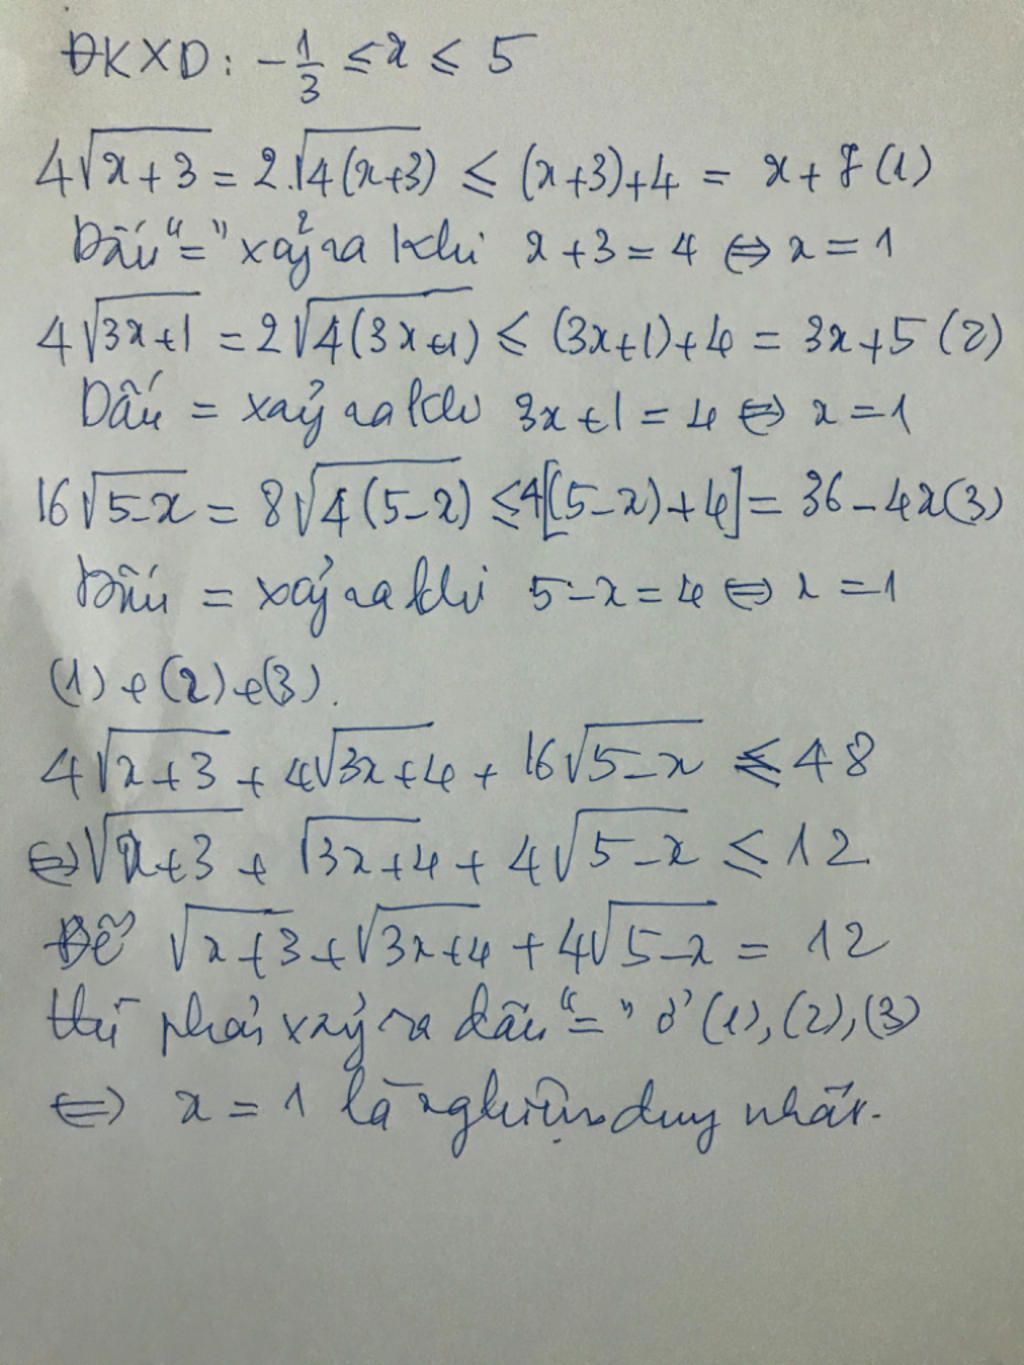 ĐKXD: -1/3 ≤ x ≤ 5
4√(x+3) = 2.√(4(x+3)) ≤ (x+3)+4 = x+7 (1)
Dấu "=" xảy ra khi x+3 = 4 ⇔ x = 1
4√(3x+1) = 2√(4(3x+1)) ≤ (3x+1)+4 = 3x+5 (2)
Dấu = xảy ra khi 3x+1 = 4 ⇔ x = 1
16√(5-x) = 8√(4(5-x)) ≤ 4[(5-x)+4] = 36-4x (3)
Dấu = xảy ra khi 5-x = 4 ⇔ x = 1
(1)+(2)+(3).
4√(x+3) + 4√(3x+4) + 16√(5-x) ≤ 48
⇔ √(x+3) + √(3x+4) + 4√(5-x) ≤ 12
Để √(x+3) + √(3x+4) + 4√(5-x) = 12
thì phải xảy ra dấu "=" ở (1), (2), (3)
⇔ x = 1 là nghiệm duy nhất.